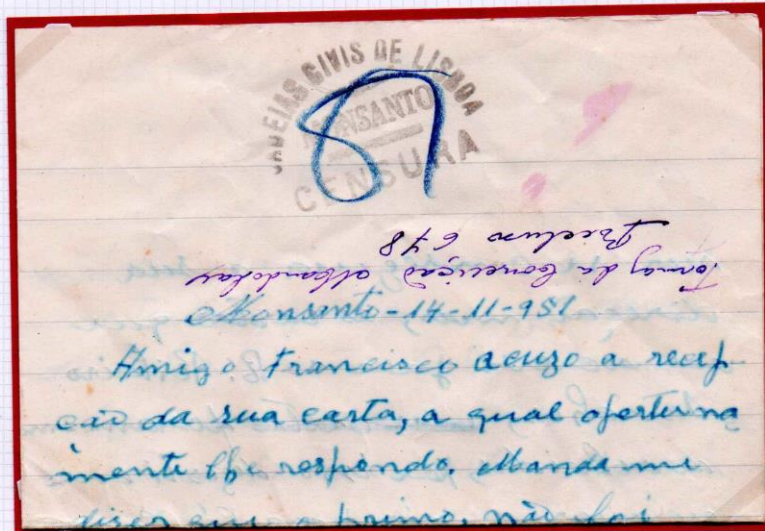 CADEIAS CIVIS DE LISBOA
MONSANTO
CENSURA
87
Tomaz da Conceição
Recluso 678
Monsanto-14-11-951
Amigo Francisco acuzo a recep
ção da sua carta, a qual opertuna
mente lhe respondo. Manda me
dizer que o primo, não foi